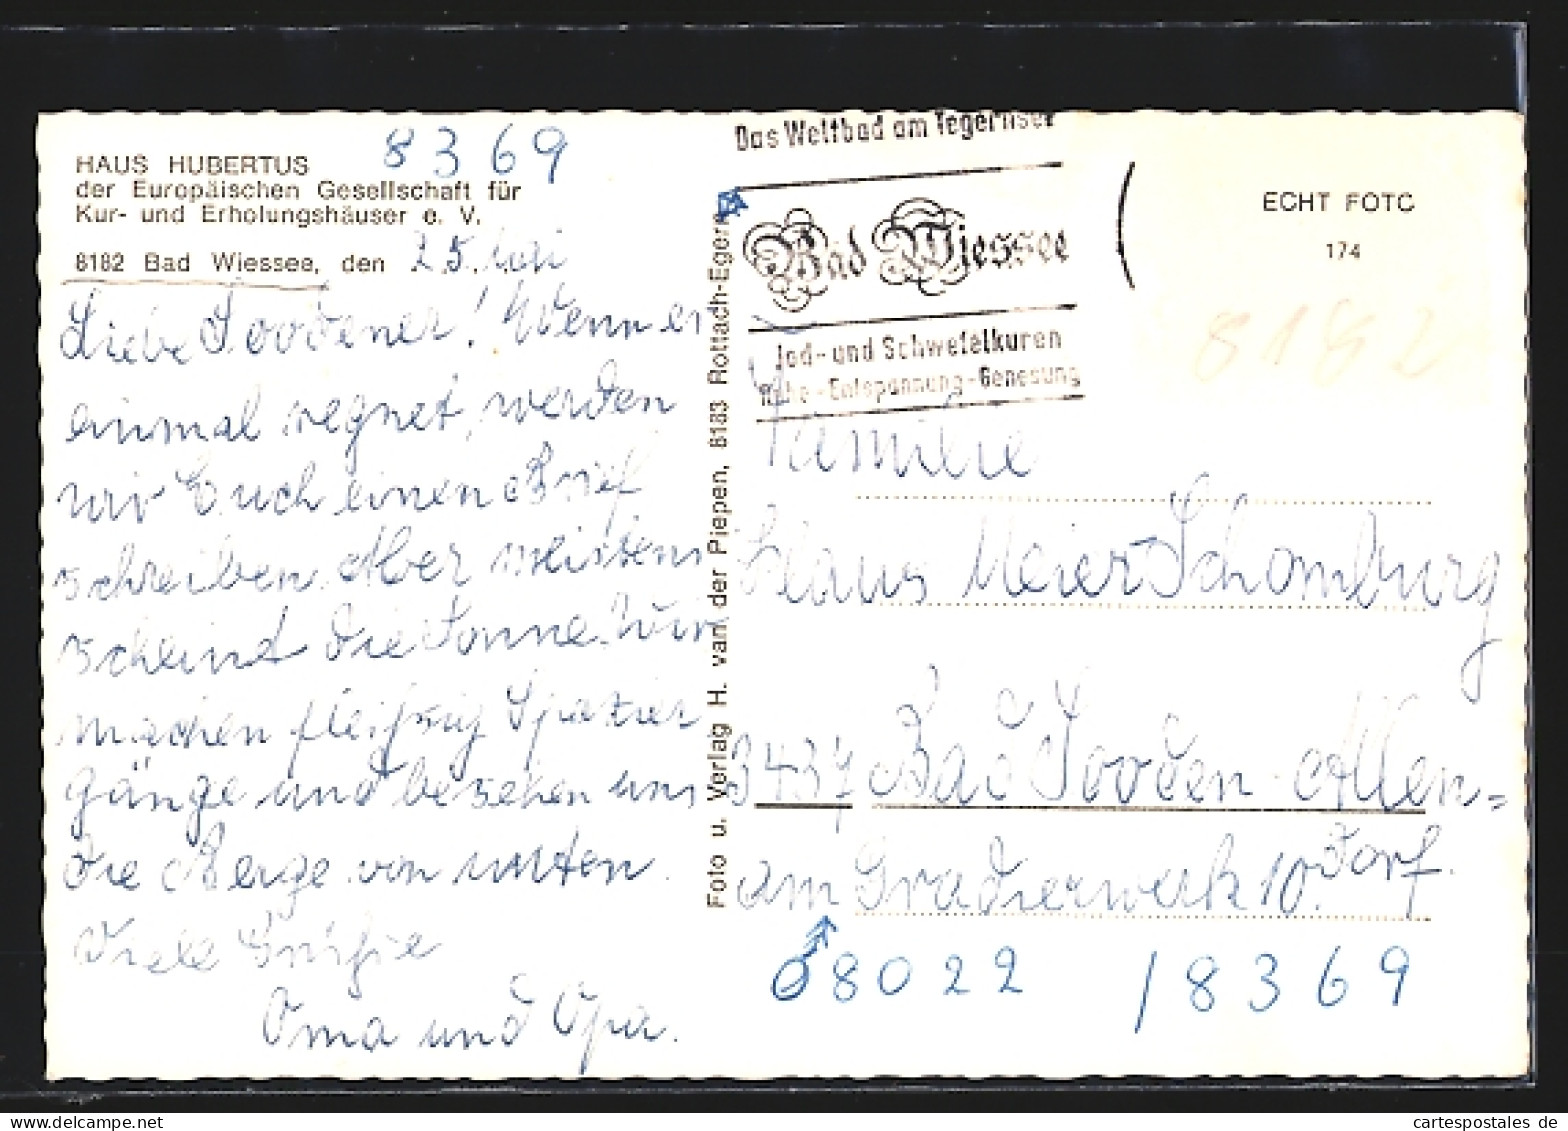 8369
HAUS HUBERTUS
der Europäischen Gesellschaft für
Kur- und Erholungshäuser e. V.
8182 Bad Wiessee, den 25. Mai
Liebe Soodener! Wenn es
einmal regnet, werden
wir Euch einen Brief
schreiben. Aber meistens
scheint die Sonne. Wir
machen fleißig Spazier
gänge und besehen uns
die Berge von unten.
Viele Grüße
Oma und Opa.
Foto u. Verlag H. van der Piepen, 8183 Rottach-Egern
Das Weltbad am Tegernsee
Bad Wiessee
Jod- und Schwefelkuren
Ruhe - Entspannung - Genesung
ECHT FOTO
174
8182
Familie
Klaus Meier-Schomburg
3437 Bad Sooden-Allen=
dorf.
am Gradierwerk 10.
8022 / 8369
cartespostales de